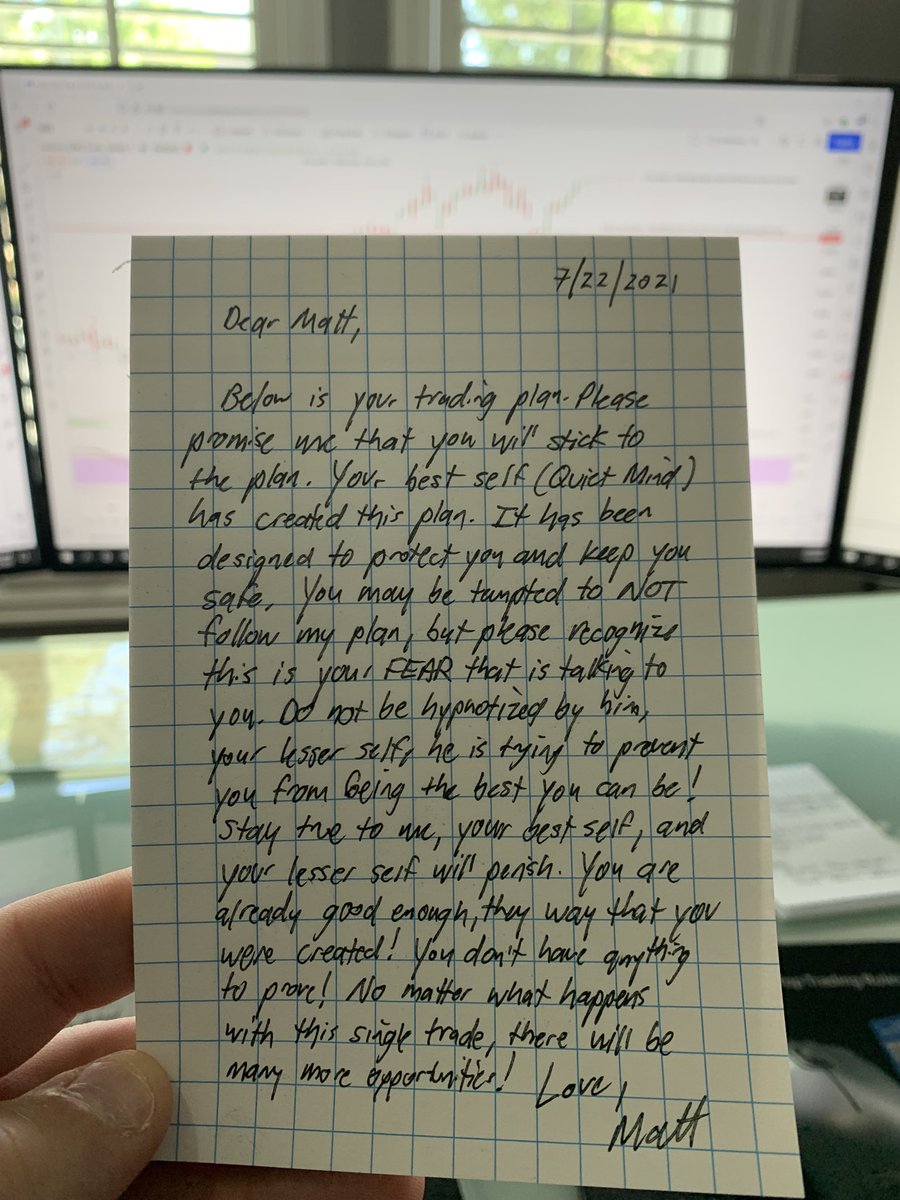 7/22/2021
Dear Matt,
Below is your trading plan. Please
promise me that you will stick to
the plan. Your best self (Quiet Mind)
has created this plan. It has been
designed to protect you and keep you
safe. You may be tempted to NOT
follow my plan, but please recognize
this is your FEAR that is talking to
you. Do not be hypnotized by him,
your lesser self, he is trying to prevent
you from being the best you can be!
Stay true to me, your best self, and
your lesser self will perish. You are
already good enough, they way that you
were created! You don't have anything
to prove! No matter what happens
with this single trade, there will be
many more opportunities! Love,
Matt